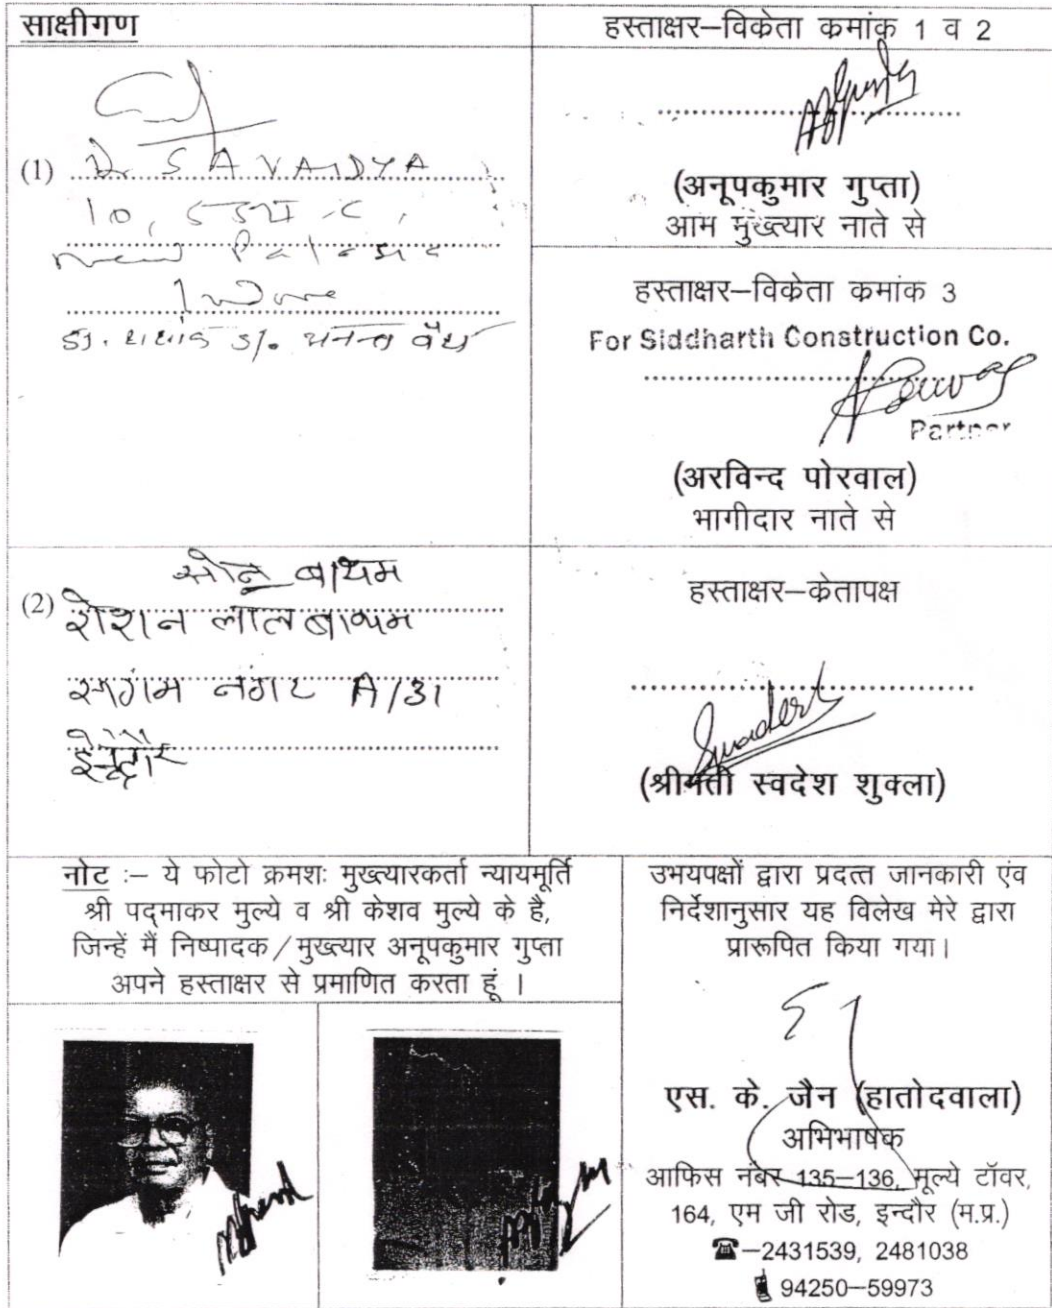 साक्षीगण
(1) Dr S A VAIDYA
10,
New Palasia
Indore
डॉ. शशांक S/o. अनन्त वैद्य
हस्ताक्षर–विकेता कमांक 1 व 2
(अनूपकुमार गुप्ता)
आम मुख्त्यार नाते से
हस्ताक्षर–विकेता कमांक 3
For Siddharth Construction Co.
Partner
(अरविन्द पोरवाल)
भागीदार नाते से
सोनू बाथम
(2) रोशन लाल बाथम
संगम नगर A/31
इन्दौर
हस्ताक्षर–केतापक्ष
(श्रीमती स्वदेश शुक्ला)
नोट :– ये फोटो क्रमशः मुख्त्यारकर्ता न्यायमूर्ति
श्री पद्माकर मुल्ये व श्री केशव मुल्ये के है,
जिन्हें मैं निष्पादक/मुख्त्यार अनूपकुमार गुप्ता
अपने हस्ताक्षर से प्रमाणित करता हूं ।
उभयपक्षों द्वारा प्रदत्त जानकारी एंव
निर्देशानुसार यह विलेख मेरे द्वारा
प्रारूपित किया गया।
एस. के. जैन (हातोदवाला)
अभिभाषक
आफिस नंबर 135–136, मूल्ये टॉवर,
164, एम जी रोड, इन्दौर (म.प्र.)
☎–2431539, 2481038
94250–59973